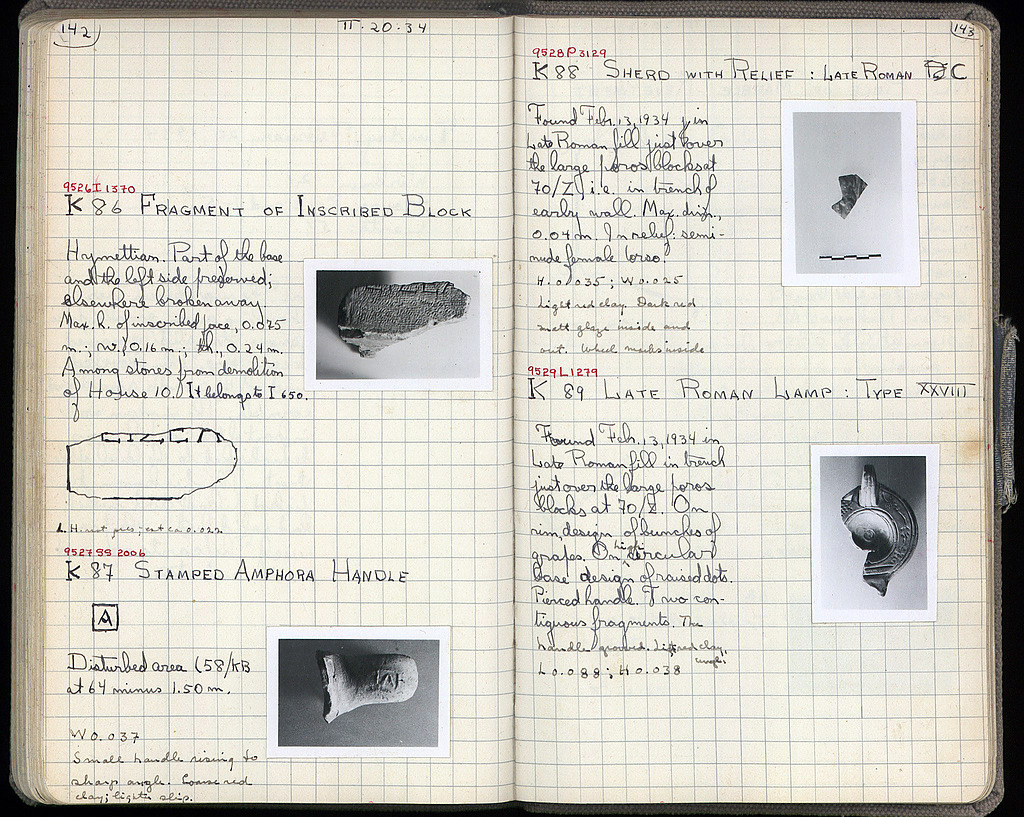 142
II-20-34
9526 I 1370
K 86 FRAGMENT OF INSCRIBED BLOCK
Hymettian. Part of the base
and the left side preserved;
elsewhere broken away.
Max. h. of inscribed face, 0.075
m.; w., 0.16 m.; th., 0.24 m.
Among stones from demolition
of House 10. It belongs to I 650.
L.H. not pres; est ca 0.022
9527 SS 2006
K 87 STAMPED AMPHORA HANDLE
A
Disturbed area (58/KB
at 64 minus 1.50 m.
W 0.037
Small handle rising to
sharp angle. Coarse red
clay; lighter slip.
143
9528 P 3129
K 88 SHERD WITH RELIEF : LATE ROMAN C
Found Feb. 13, 1934 in
Late Roman fill just over
the large poros blocks at
70/Z, i.e. in trench of
early wall. Max. dim.,
0.04 m. In relief: semi-
nude female torso.
H. 0.035; W 0.025
Light red clay. Dark red
matt glaze inside and
out. Wheel marks inside
9529 L 1279
K 89 LATE ROMAN LAMP : TYPE XXVIII
Found Feb. 13, 1934 in
Late Roman fill in trench
just over the large poros
blocks at 70/Z. On
rim, design of bunches of
grapes. On high circular
base design of raised dots.
Pierced handle. Two con-
tiguous fragments. The
handle grooved. Lt red clay,
L 0.088; H 0.038